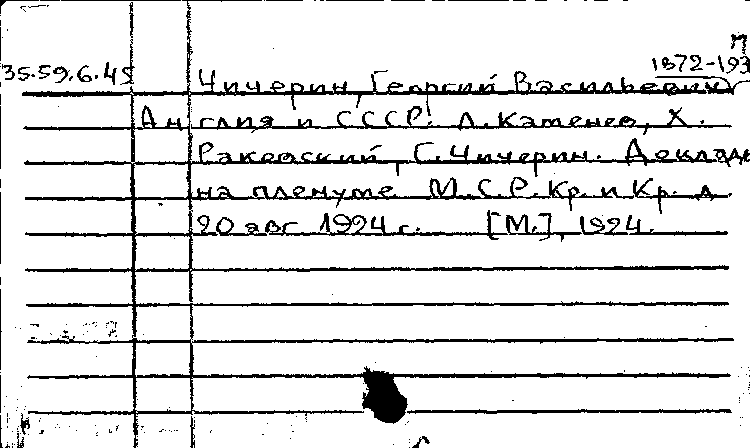 М
1872-193
35.59.6.45 Чичерин, Георгий Васильевич
Англия и СССР. Л.Каменев, Х.
Раковский, Г.Чичерин. Доклады
на пленуме М.С.Р.Кр. и Кр. д.
20 авг 1924 г. [М.], 1924.